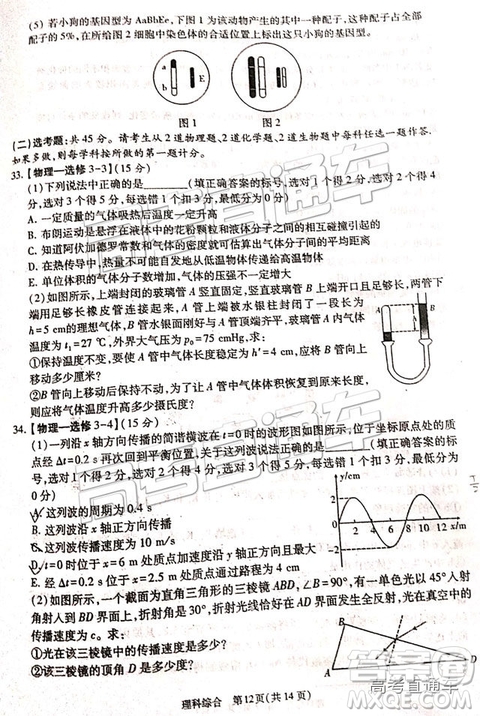 (5) 若小狗的基因型为 AaBbEe,下图 1 为该动物产生的其中一种配子,这种配子占全部
配子的 5%,在所给图 2 细胞中染色体的合适位置上标出这只小狗的基因型。
a
b
E
图 1
图 2
(二)选考题:共 45 分。请考生从 2 道物理题、2 道化学题、2 道生物题中每科任选一题作答。
如果多做,则每学科按所做的第一题计分。
33.【物理—选修 3-3】(15 分)
(1)下列说法中正确的是________(填正确答案的标号,选对 1 个得 2 分,选对 2 个得 4
分,选对 3 个得 5 分,每选错 1 个扣 3 分,最低得分为 0 分)
A. 一定质量的气体吸热后温度一定升高
B. 布朗运动是悬浮在液体中的花粉颗粒和液体分子之间的相互碰撞引起的
C. 知道阿伏加德罗常数和气体密度就可以估算出气体分子间的平均距离
D. 在热传导中,热量不可能自发地从低温物体传递给高温物体
E. 单位体积的气体分子数增加,气体的压强不一定增大
(2)如图所示,上端封闭的玻璃管 A 竖直固定,竖直玻璃管 B 上端开口且足够长,两管下
端用足够长橡皮管连接起来,A 管上端被一段水银柱封闭了一段长为
h=5 cm 的理想气体,B 管水银面刚好与 A 管顶端齐平,玻璃管导热性良好,
温度为 t₁=27 ℃,外界大气压为 p₀=75 cmHg,求:
①保持温度不变,要使 A 管中气体稳定后长度变为 h′=4 cm,应将 B 管向上
移动多少厘米?
②B 管向上移动后保持不动,为了让 A 管中气体体积恢复到原来长度,
则应将气体温度升高多少摄氏度?
A
B
34.【物理—选修 3-4】(15 分)
(1)一列沿 x 轴方向传播的简谐横波在 t=0 时的波形图如图所示,位于坐标原点处的质
点经 Δt=0.2 s 再次回到平衡位置,关于这列波的说法中正确的是________(填正确答案
的标号,选对 1 个得 2 分,选对 2 个得 4 分,选对 3 个得 5 分,每选错 1 个扣 3 分,最低得分为
0 分)
A. 这列波的周期为 0.4 s
B. 这列波沿 x 轴正方向传播
C. 这列波传播速度为 10 m/s
D. t=0 时位于 x=6 m 处质点沿 y 轴正方向运动
E. 经过 Δt=0.2 s 位于 x=2.5 m 处质点通过路程为 4 cm
y/cm
2
0
-2
2 4 6 8 10 12 x/m
(2)如图所示,一个截面为直角三角形的三棱镜 ABD,∠B=90°,有一单色光以 45°入射
角射入到三棱镜 BD 界面上,折射角是 30°,折射光线恰好在 AD 界面发生全反射,光在真空中的
传播速度为 c。求:
①光在该三棱镜中的传播速度是多少?
②该三棱镜的顶角 D 是多少度?
A
B
D
理科综合 第12页(共 14 页)
高考直通车